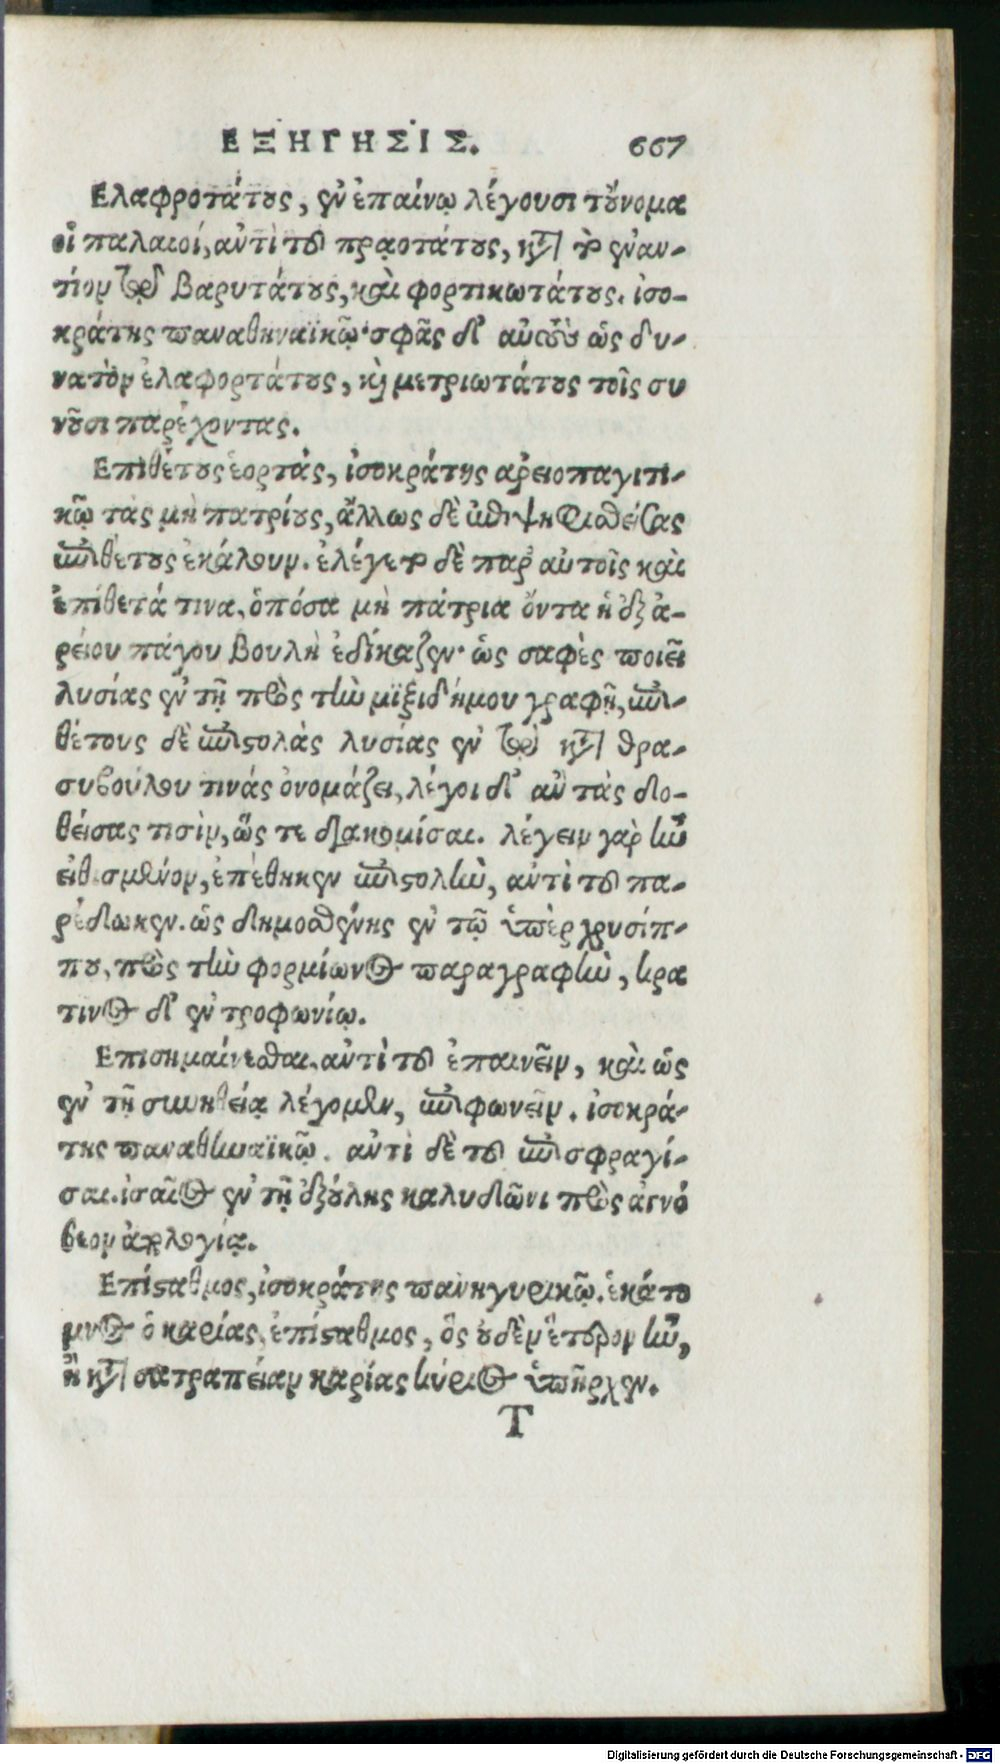 ΕΞΗΓΗΣΙΣ. 667
Ελαφροτάτους, ἐν ἐπαίνῳ λέγουσι τοὔνομα
οἱ παλαιοί, ἀντὶ τοῦ πραοτάτους, κατὰ τὸ ἐναν-
τίον τῷ βαρυτάτους, καὶ φορτικωτάτους. ἰσο-
κράτης παναθηναϊκῷ· σφᾶς δ' αὐτοὺς ὡς δυ-
νατὸν ἐλαφορτάτους, καὶ μετριωτάτους τοῖς συ
νοῦσι παρέχοντας.
Επιθέτους ἑορτάς, ἰσοκράτης ἀρειοπαγιτι-
κῷ τὰς μὴ πατρίους, ἄλλως δὲ ἐπιψηφισθείσας
ἐπιθέτους ἐκάλουν. ἐλέγετο δὲ παρ' αὐτοῖς καὶ
ἐπίθετά τινα, ὁπόσα μὴ πάτρια ὄντα ἡ ἐξ ἀ-
ρείου πάγου βουλὴ ἐδίκαζεν· ὡς σαφὲς ποιεῖ
λυσίας ἐν τῇ πρὸς τὴν μϊξιδήμου γραφῇ, ἐπι-
θέτους δὲ ἐπιστολὰς λυσίας ἐν τῷ κατὰ θρα-
συβούλου τινάς ὀνομάζει, λέγοι δ' ἂν τὰς δο-
θείσας τισὶν, ὥς τε διακομίσαι. λέγειν γὰρ ἦν
εἰθισμένον, ἐπέθηκεν ἐπιστολὴν, ἀντὶ τοῦ πα-
ρέδωκεν. ὡς δημοσθένης ἐν τῷ ὑπὲρ χρυσίπ-
που, πρὸς τὴν φορμίωνος παραγραφὴν, κρα
τινος δ' ἐν τροφωνίῳ.
Επισημαίνεσθαι, ἀντὶ τοῦ ἐπαινεῖν, καὶ ὡς
ἐν τῇ συνηθείᾳ λέγομεν, ἐπιφωνεῖν. ἰσοκρά-
της παναθηναϊκῷ. ἀντὶ δὲ τοῦ ἐπισφραγί-
σαι. ἰσαῖος ἐν τῇ ἐξούλης καλυδῶνι πρὸς ἁγνό
θεον ἀπολογίᾳ.
Επίσταθμος, ἰσοκράτης πανηγυρικῷ. ἑκάτο
μνος ὁ καρίας ἐπίσταθμος, ὃς οὐδὲν ἕτερον ἦν,
ἢ κατὰ σατραπείαν καρίας κύριος ὑπῆρχεν.
Τ
Digitalisierung gefördert durch die Deutsche Forschungsgemeinschaft - DFG